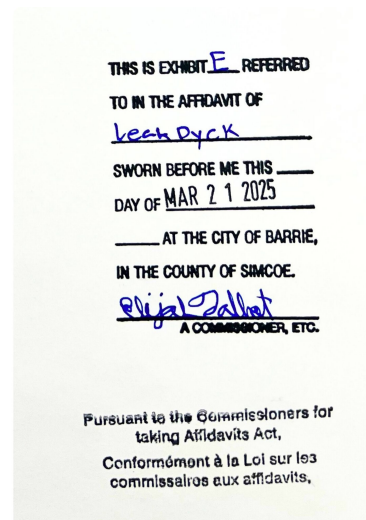 THIS IS EXHIBIT E REFERRED
TO IN THE AFFIDAVIT OF
Leah Dyck
SWORN BEFORE ME THIS
DAY OF MAR 21 2025
AT THE CITY OF BARRIE,
IN THE COUNTY OF SIMCOE.
Elijah Talbot
A COMMISSIONER, ETC.
Pursuant to the Commissioners for
taking Affidavits Act,
Conformément à la Loi sur les
commissaires aux affidavits,